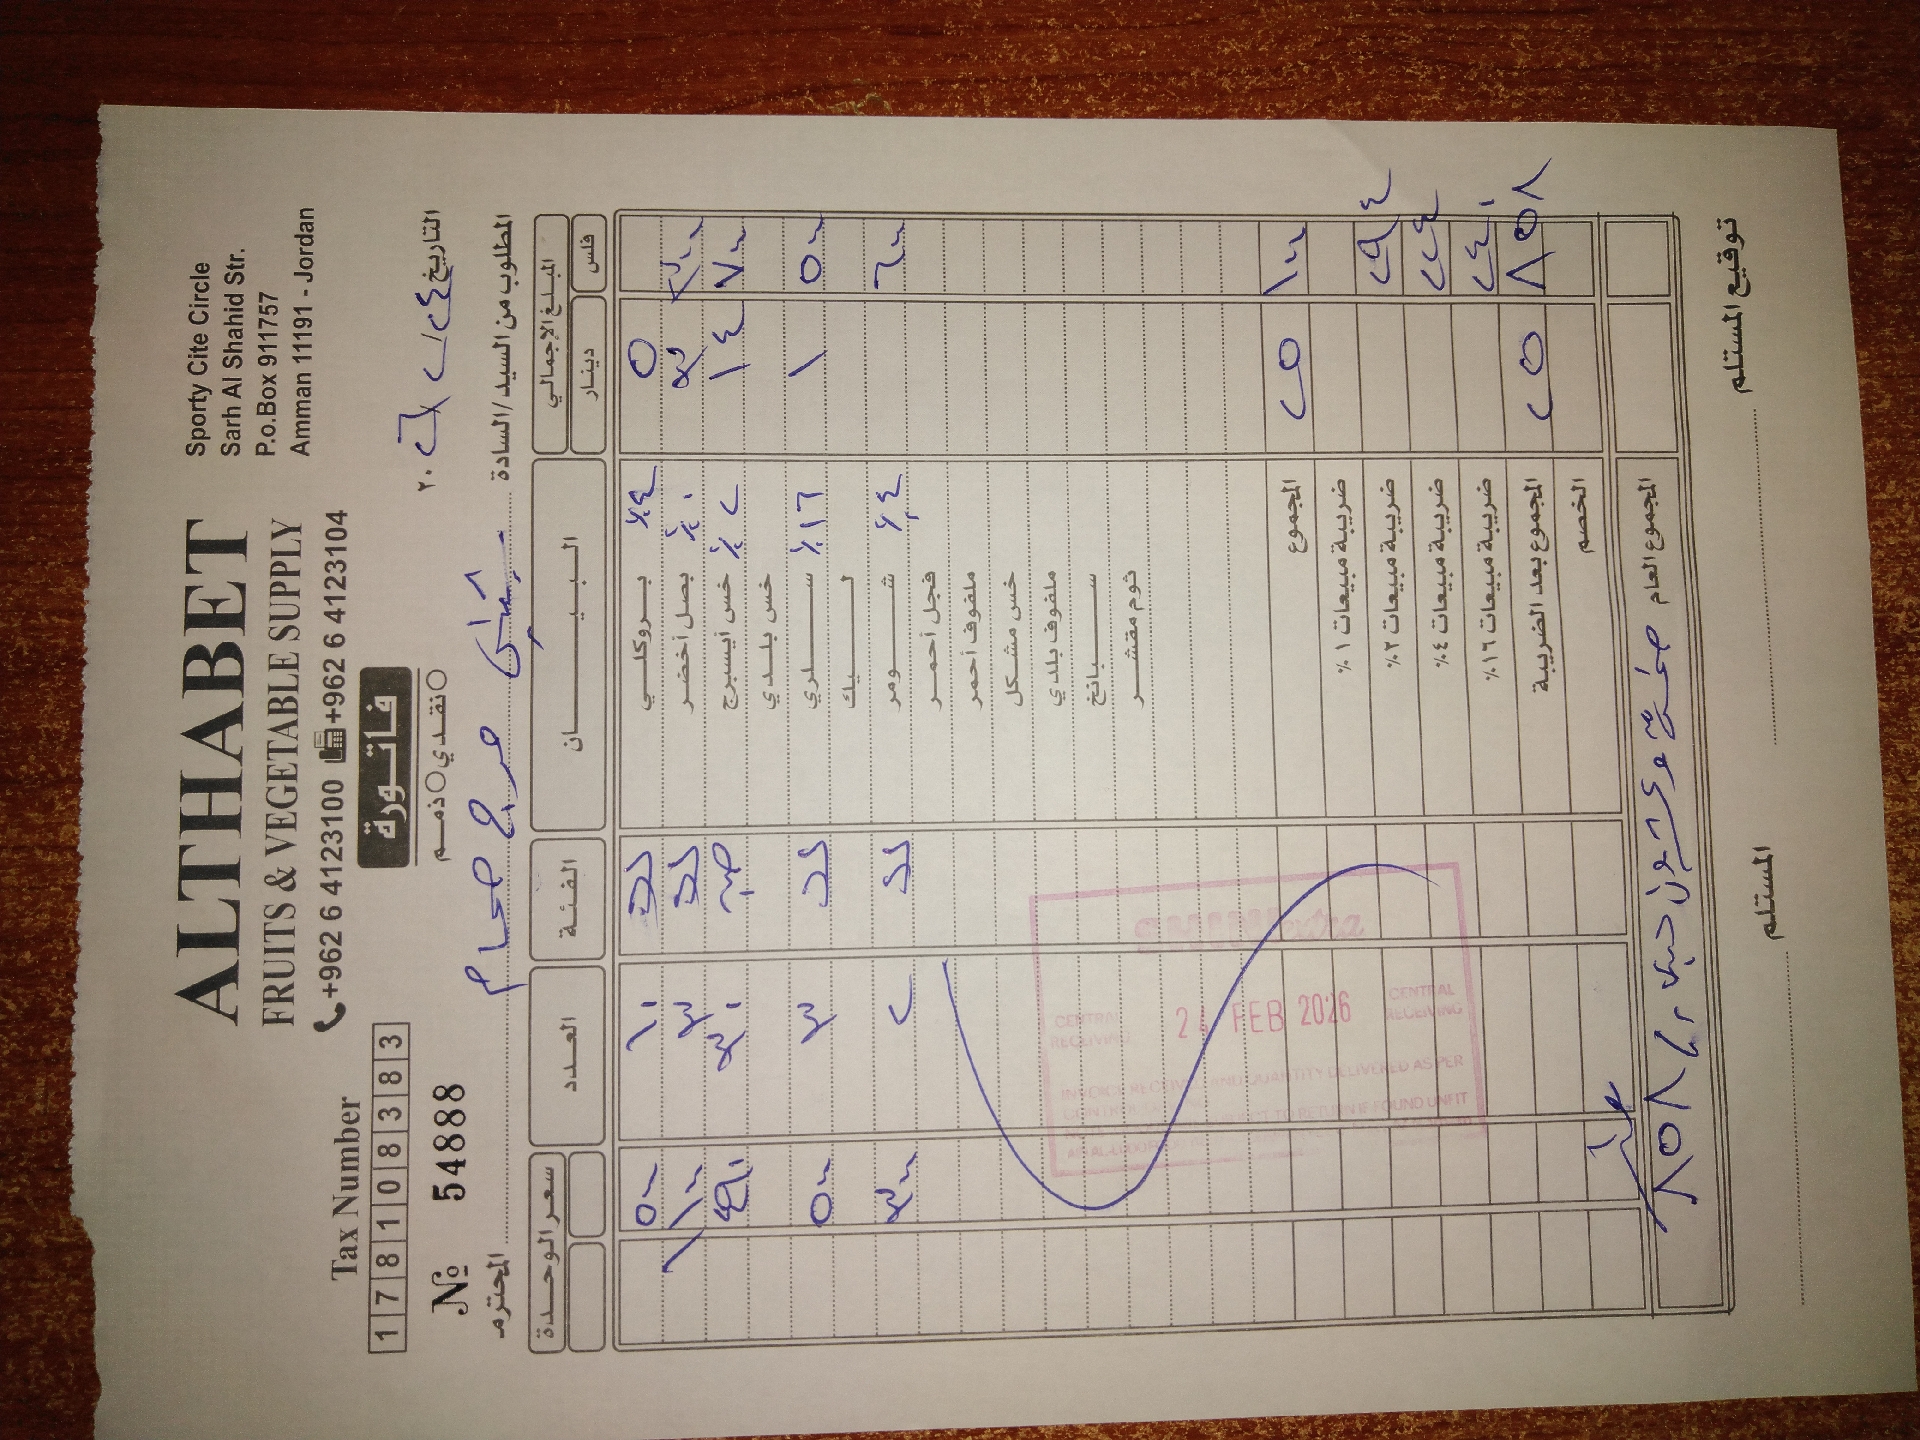 ALTHABET
FRUITS & VEGETABLE SUPPLY
+962 6 4123100 +962 6 4123104
Sporty Cite Circle
Sarh Al Shahid Str.
P.o.Box 911757
Amman 11191 - Jordan
Tax Number
1 7 8 1 0 8 3 8 3
№ 54888
فاتورة
نقدي ذمم
التاريخ ٢٤/٢/٢٠٢٦
المطلوب من السيد/السادة
المحترم
المبلغ الإجمالي البيـــــان الفئة العدد سعر الوحدة
فلس دينار
٥ بروكلـــي ٪٤ ١٠ ٥٠٠
٣ ٣٠٠ بصل أخضر ٪٠ ٣ ١١٠٠
١٤ ٧٠٠ خس ايسبرج ٪٢ ٣٠ ٤٩٠
خس بلدي
١ ٥٠٠ سلـــري ٪١٦ ٣ ٥٠٠
ليـــك
٦٠٠ شـــومر ٪٤ ٢ ٣٠٠
فجل أحمر
ملفوف أحمر
خس مشكل
ملفوف بلدي
ســـبانخ
ثوم مقشر
المجموع ٢٥ ١٠٠
ضريبة مبيعات ١٪
ضريبة مبيعات ٢٪ ٢٩٤
ضريبة مبيعات ٤٪ ٢٢٤
ضريبة مبيعات ١٦٪ ٢٤٠
المجموع بعد الضريبة ٢٥ ٨٥٨
الخصم
المجموع العام خمسة وعشرون دينار و ٨٥٨
CENTRAL RECEIVING 24 FEB 2026 CENTRAL RECEIVING
INVOICE RECEIVED AND QUANTITY DELIVERED AS PER
TO RETURN IF FOUND UNFIT
المستلم
توقيع المستلم